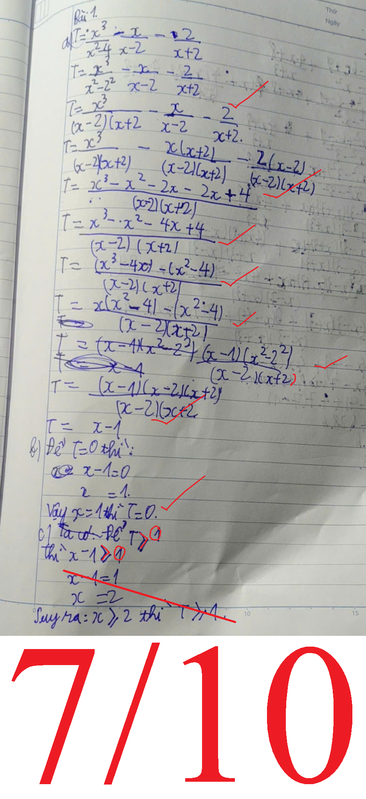 Bài 1.
a) T = x³/x²-4 - x/x-2 - 2/x+2
T = x³/x²-2² - x/x-2 - 2/x+2
T = x³/(x-2)(x+2 - x/x-2 - 2/x+2.
T = x³/(x-2)(x+2) - x(x+2)/(x-2)(x+2) - 2(x-2)/(x-2)(x+2)
T = x³-x²-2x-2x+4/(x-2)(x+2)
T = x³-x²-4x+4/(x-2)(x+2)
T = (x³-4x)-(x²-4)/(x-2)(x+2)
T = x(x²-4)-(x²-4)/(x-2)(x+2)
T = (x-1)(x²-2²)/(x-2)(x+2)
T = (x-1)(x-2)(x+2)/(x-2)(x+2
T = x-1
b) Để T=0 thì:
x-1=0
x = 1.
Vậy x=1 thì T=0.
c) Để T ⩾ 1
thì x-1 ⩾ 1
x-1=1
x = 2
Suy ra: x ⩾ 2 thì T ⩾ 1.
Thứ
Ngày
10
15
7/10